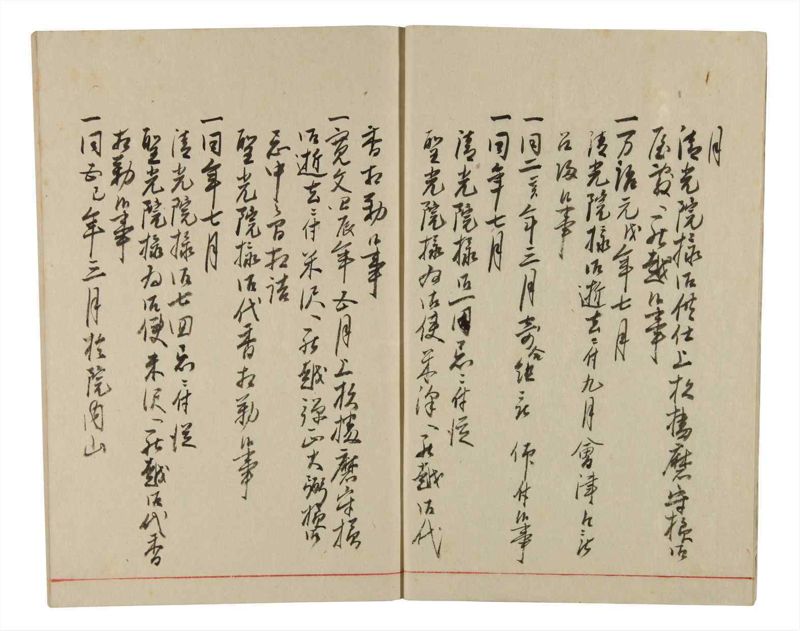 月
清光院様御供仕上杉播磨守様御
屋敷へ罷越候事
一万治元戌年七月
清光院様御逝去ニ付九月會津ゟ
被召返候事
一同二亥年三月寄合組被仰付候事
一同年七月
清光院様御一周忌ニ付従
聖光院様為御使米沢へ罷越御代
香相勤候事
一寛文四辰年五月上杉播磨守様
御逝去ニ付米沢へ罷越弾正大弼様御
忌中之間相詰
聖光院様御代香相勤候事
一同年七月
清光院様御七回忌ニ付従
聖光院様為御使米沢へ罷越御代香
相勤候事
一同五巳年三月於院内山